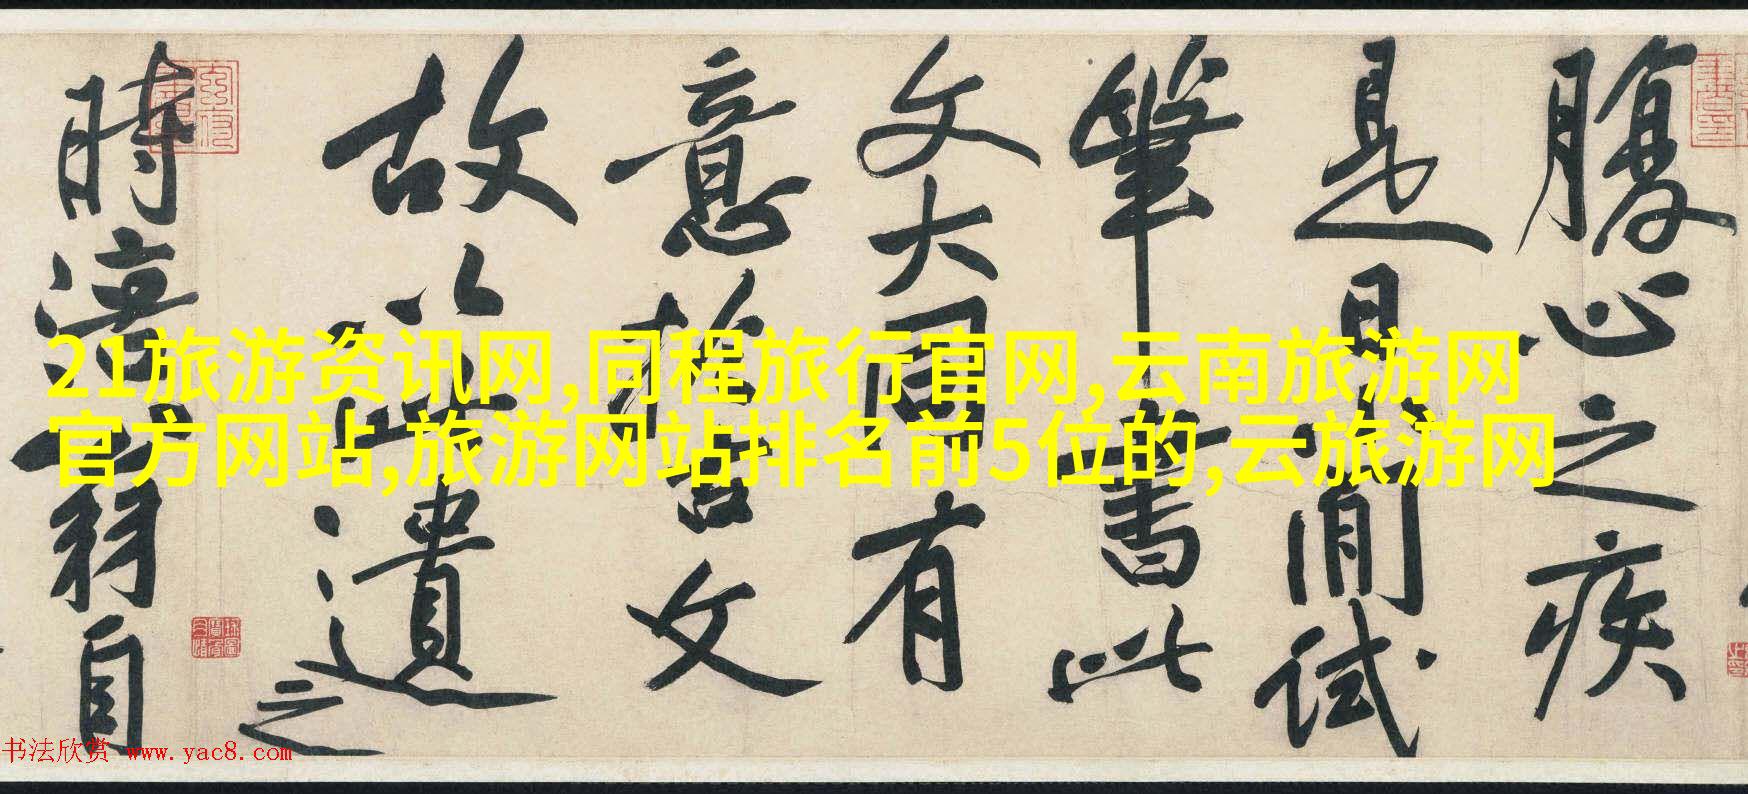 腹心之疾
是日閒試
筆書此
文大同有
意於古文
故遺之
時涪翁自
21旅游资讯网,同程旅行官网,云南旅游网
官方网站,旅游网站排名前5位的,云旅游网
书法欣赏 www.yac8.com